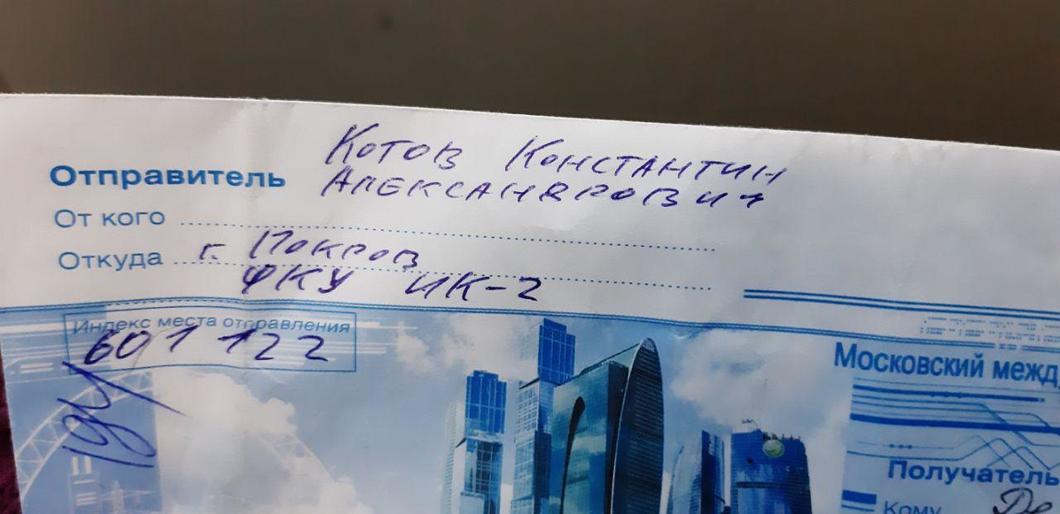 Котов Константин
Отправитель Александрович
От кого
Откуда г. Покров
ФКУ ИК-2
Индекс места отправления
601122
Московский межд
Получатель
Кому Де